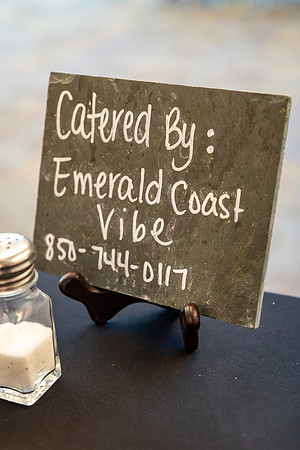 Catered By:
Emerald Coast
Vibe
850-744-0117